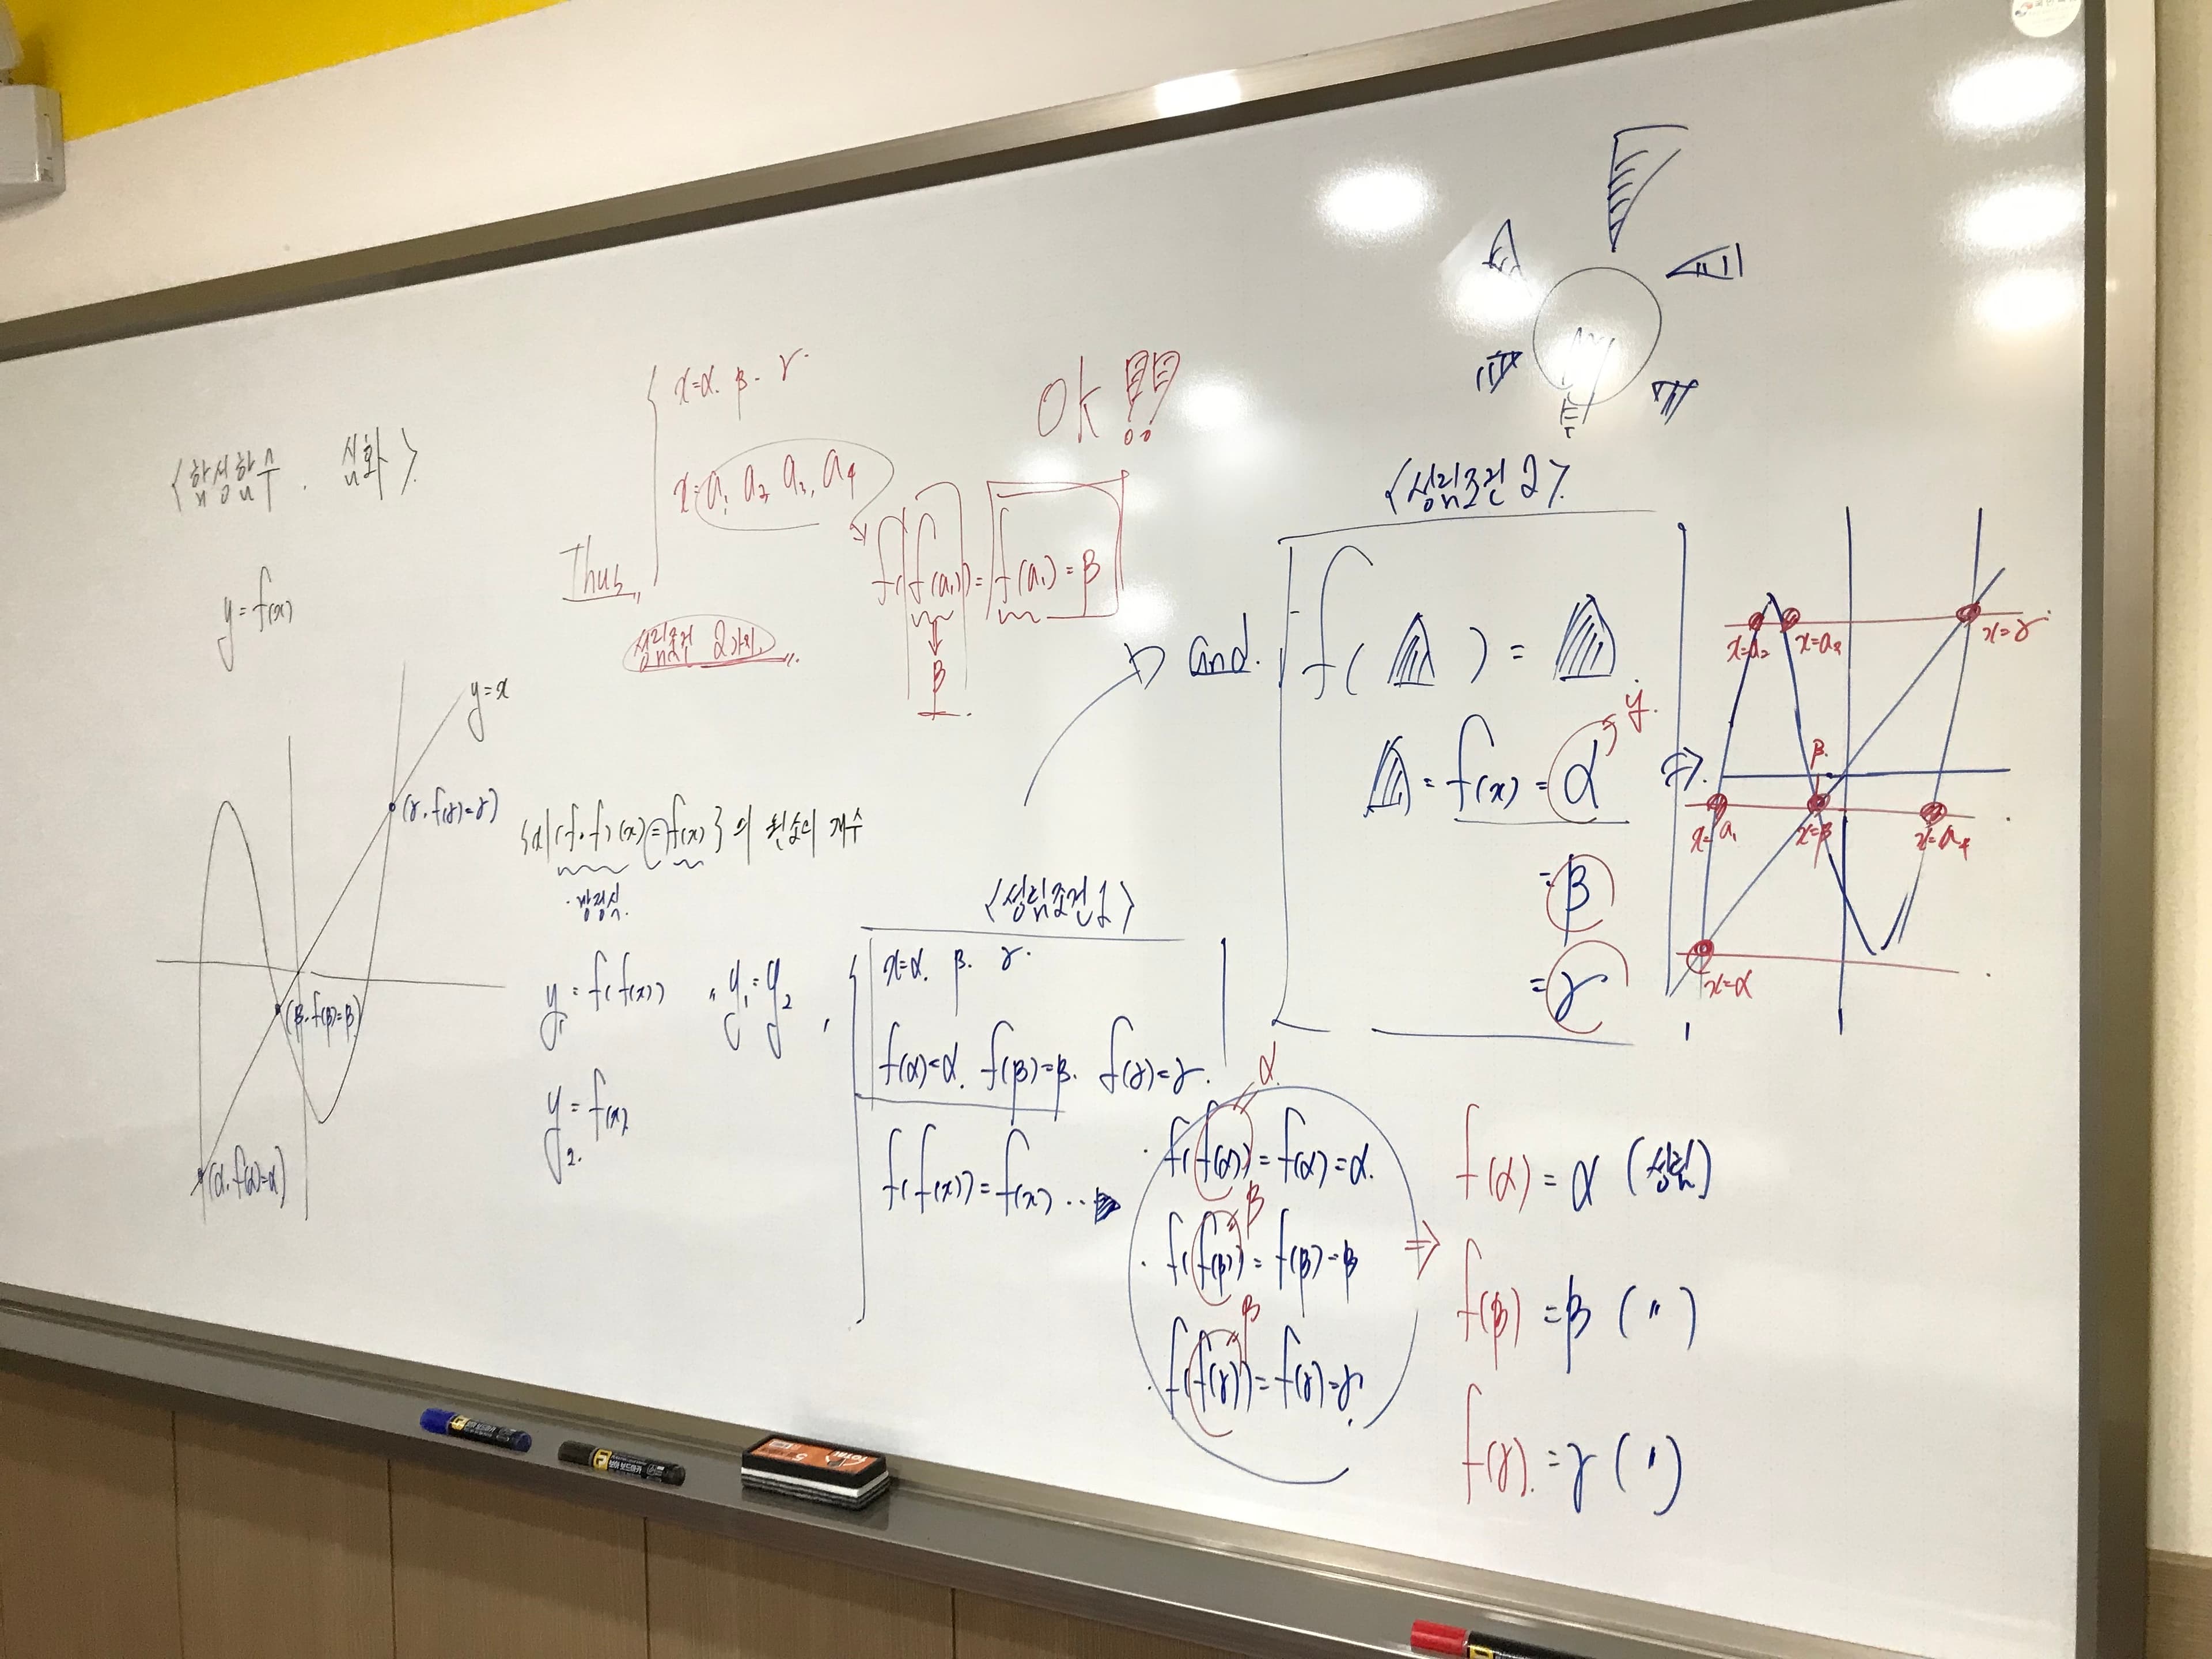 <합성함수. 심화>
y=f(x)
y=x
(γ, f(γ)=γ)
(β, f(β)=β)
(α, f(α)=α)
Thus,,
x=α. β. γ
x=a₁ a₂ a₃, a₄
f(f(a₁))=f(a₁)=β
β
성립조건 2가지,
OK !!
{x|(f∘f)(x)=f(x)}의 원소의 개수
방정식.
y₁=f(f(x))
y₂=f(x)
y₁=y₂,
<성립조건 1>
x=α. β. γ.
f(α)=α. f(β)=β. f(γ)=γ.
f(f(x))=f(x)
α
· f(f(α))=f(α)=α.
β
· f(f(β))=f(β)=β
β
· f(f(γ))=f(γ)=γ.
⇒
f(α)=α (성립)
f(β)=β (〃)
f(γ)=γ (〃)
and.
<성립조건 2>
f( ) =
= f(x) = α
y.
=β
=γ
⇒
x=a₂
x=γ
β.
x=a₁
x=β
x=a₄
x=α